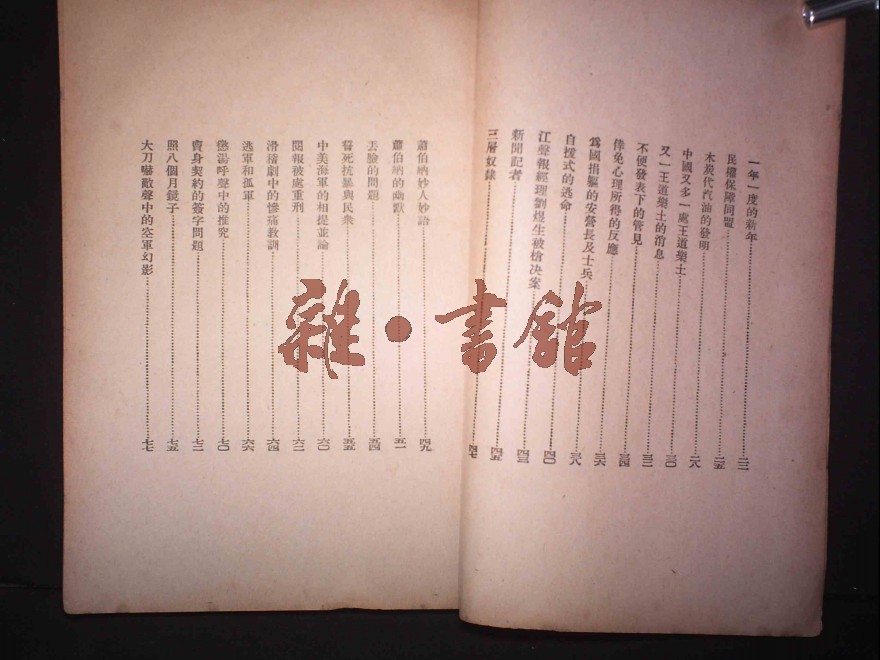 一年一度的新年……二二
民權保障同盟……二五
木炭代汽油的發明……二八
中國又多一處王道樂土……三〇
又一王道樂土的消息……三二
不便發表下的管見……三四
倖免心理所得的反應……三六
爲國捐軀的安營長及士兵……三八
自援式的逃命……四〇
江聲報經理劉煜生被槍決案……四三
新聞記者……四五
三層奴隸……四七
蕭伯納妙人妙語……四九
蕭伯納的幽默……五一
丟臉的問題……五四
誓死抗暴與民衆……五五
中美海軍的相提並論……六〇
閱報被處重刑……六二
滑稽劇中的慘痛教訓……六四
逃軍和孤軍……六六
懲湯呼聲中的推究……七〇
賣身契約的簽字問題……七二
照八個月鏡子……七五
大刀嚇敵聲中的空軍幻影……七七
雜·書館